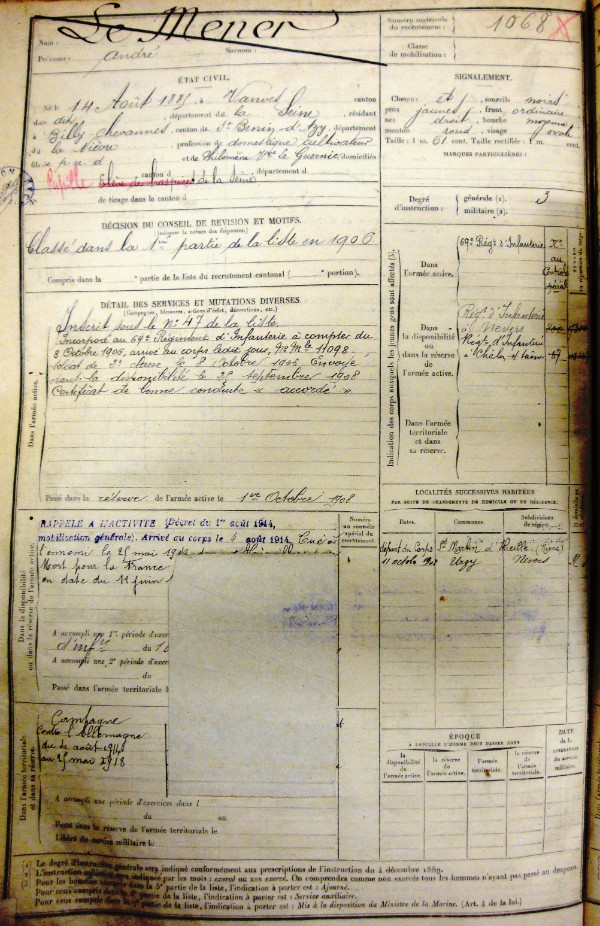 Le Mener
Nom :
Prénoms : André
Surnoms :
Numéro matricule du recrutement : 1068
Classe de mobilisation :
ÉTAT CIVIL.
Né le 14 Août 1885, à Vanves, canton
dud. département de la Seine, résidant
à Billy-Chevannes, canton de St Benin d'Azy, département
de la Nièvre, profession de domestique cultivateur
fils de et de Philomène Le Guernic domiciliés
canton d département d
Pupille de la Seine
de tirage dans le canton d
DÉCISION DU CONSEIL DE REVISION ET MOTIFS.
Classé dans la 1re partie de la liste en 1906
Compris dans la partie de la liste du recrutement cantonal ( portion).
DÉTAIL DES SERVICES ET MUTATIONS DIVERSES.
(Campagnes, blessures, actions d'éclat, décorations, etc.)
Inscrit sous le No 47 de la liste
Incorporé au 69e Régiment d'Infanterie à compter du
8 Octobre 1906, arrivé au corps ledit jour, No Mle 4098,
soldat de 2e classe le 8 Octobre 1906. Envoyé
dans la disponibilité le 25 septembre 1908
Certificat de bonne conduite « accordé ».
Dans l'armée active.
Passé dans la réserve de l'armée active le 1er Octobre 1908
RAPPELÉ A L'ACTIVITÉ (Décret du 1er août 1914,
mobilisation générale). Arrivé au corps le 4 août 1914. Tué à
l'ennemi le 25 mai
Mort pour la France
en date du 11 juin
Dans la disponibilité ou dans la réserve de l'armée active
A accompli une 1re période d'exer
d'infrie du
A accompli une 2e période d'exer
du
Passé dans l'armée territoriale l
Numéro au contrôle spécial du recrutement.
Campagne
contre l'Allemagne
du 4 août 1914
au 25 mai 1918
Dans l'armée territoriale et dans sa réserve.
A accompli une période d'exercices dans l
du au
Passé dans la réserve de l'armée territoriale le
Libéré du service militaire le
SIGNALEMENT.
Cheveux et sourcils noirs
yeux jaunes, front ordinaire
nez droit, bouche moyenne
menton rond, visage ovale
Taille : 1 m. 61 cent. Taille rectifiée : 1 m. cent.
MARQUES PARTICULIÈRES :
Degré d'instruction :
générale (1). 3
militaire (2).
Indication des corps auxquels les jeunes gens sont affectés (3).
Dans l'armée active.
69e Régt d'Infanterie
Dans la disponibilité ou dans la réserve de l'armée active.
Régt d'Infanterie
de Nevers
Régt d'Infanterie
Dans l'armée territoriale et dans sa réserve.
LOCALITÉS SUCCESSIVES HABITÉES
PAR SUITE DE CHANGEMENTS DE DOMICILE OU DE RÉSIDENCE.
Dates. Communes. Subdivisions de région.
départ du Corps St Martin d'Heuille (Nièvre)
11 octobre 1908 Urzy Nevers
ÉPOQUE
À LAQUELLE L'HOMME DOIT PASSER DANS
la disponibilité de l'armée active.
la réserve de l'armée active.
l'armée territoriale.
la réserve de l'armée territoriale.
DATE de la LIBÉRATION du service militaire.
(1) Le degré d'instruction générale sera indiqué conformément aux prescriptions de l'instruction du 4 décembre 1889.
(2) L'instruction militaire sera indiquée par les mots : exercé ou non exercé. On comprendra comme non exercés tous les hommes n'ayant pas passé au drapeau.
(3) Pour les hommes compris dans la 5e partie de la liste, l'indication à porter est : Ajourné.
Pour ceux compris dans la partie de la liste, l'indication à porter est : Service auxiliaire.
Pour ceux compris dans la partie de la liste, l'indication à porter est : Mis à la disposition du Ministre de la Marine. (Art. 4 de la loi.)